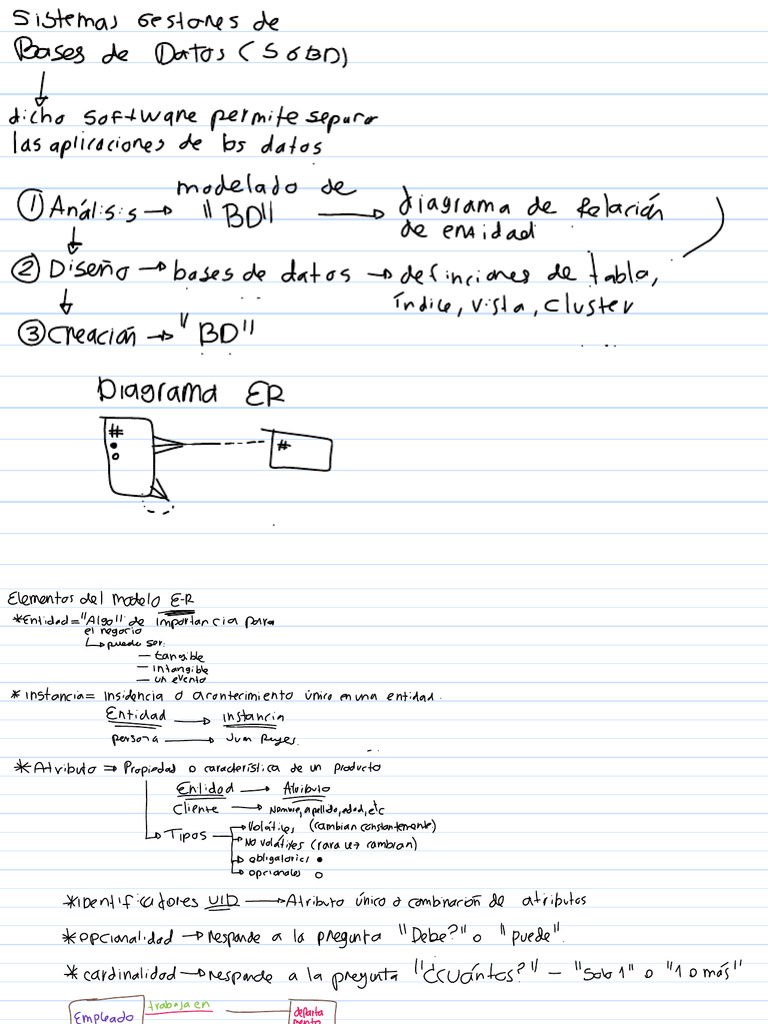 Sistemas Gestores de
Bases de Datos (SGBD)
dicho software permite separar
las aplicaciones de los datos
① Análisis → modelado de "BD" → diagrama de Relación
de entidad
② Diseño → bases de datos → definiciones de tabla,
índice, vista, cluster
③ Creación → "BD"
Diagrama ER
#
#
Elementos del modelo E-R
*Entidad = "Algo" de importancia para
el negocio
↳ puede ser:
— tangible
— intangible
— un evento
* Instancia = insidencia o acontecimiento único en una entidad.
Entidad → instancia
persona → Juan Reyes.
* Atributo ⇒ Propiedad o característica de un producto
Entidad → Atributo
Cliente → Nombre, apellido, edad, etc
↳ Tipos → Volátiles (cambian constantemente)
→ NO volátiles (rara vez cambian)
→ obligatorios ●
→ opcionales ○
*identificadores UID → Atributo único o combinación de atributos
*opcionalidad → Responde a la pregunta "Debe?" o "puede".
* cardinalidad → responde a la pregunta "¿cuántos?" — "Solo 1" o "1 o más"
trabaja en
Empleado
departa
mento